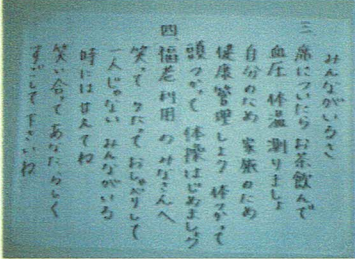 みんながいるさ
三 席についたらお茶飲んで
血圧 体温 測りましょ
自分のため 家族のため
健康管理しよう 体つかって
頭つかって 体操はじめましょう
四 福老利用のみなさんへ
笑って うたって おしゃべりして
一人じゃない みんながいる
時には甘えてね
笑い合って あなたらしく
すごして下さいね